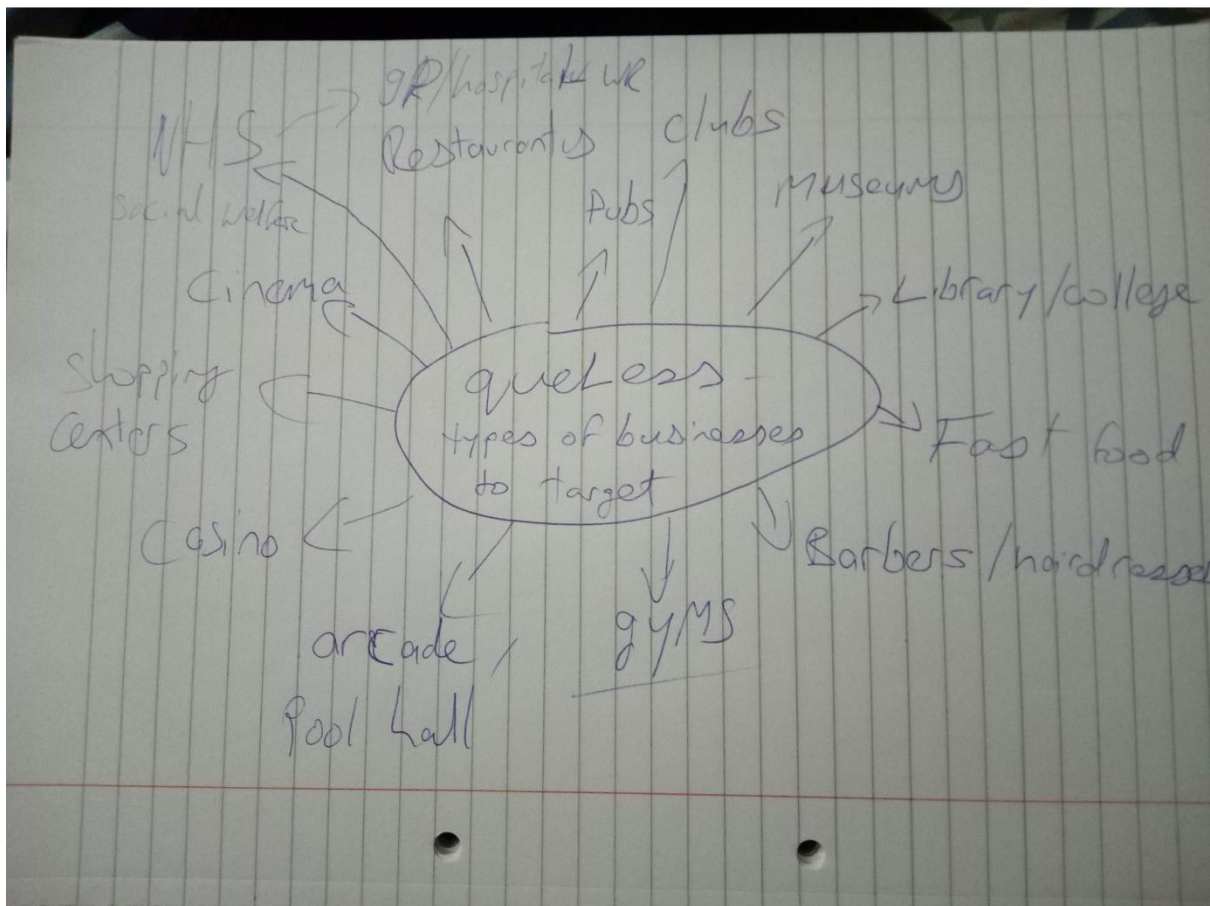 queLess -
types of businesses
to target
NHS
social welfare
GP/hospital WR
Restaurants
Pubs
Clubs
Museums
Library/college
Fast food
Barbers/hairdresser
gyms
arcade /
Pool hall
Casino
Shopping
Centers
Cinema